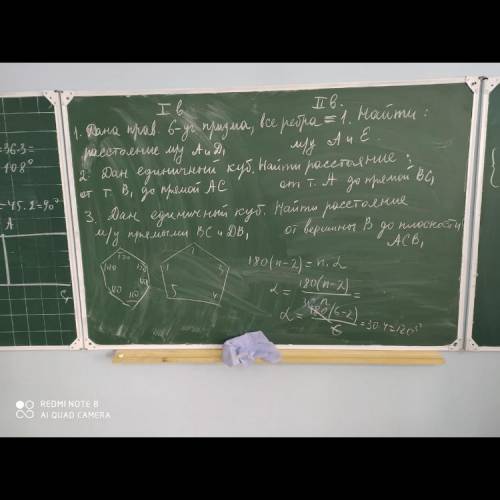 =36·3=
108°
=45·2=90°
A
I в.
II в.
1. Дана прав. 6-уг призма, все ребра = 1. Найти:
расстояние м/у А и D₁
м/у А и Е.
2. Дан единичный куб. Найти расстояние:
от т. В₁ до прямой АС
от т. А до прямой BC₁
3. Дан единичный куб. Найти расстояние
м/у прямыми ВС и DB₁
от вершины В до плоскости
ACB₁
180(n-2)=n·α
α = 180(n-2)/n =
α = 180(6-2)/6 = 30·4=120°
120
1
5
4
REDMI NOTE 8
AI QUAD CAMERA